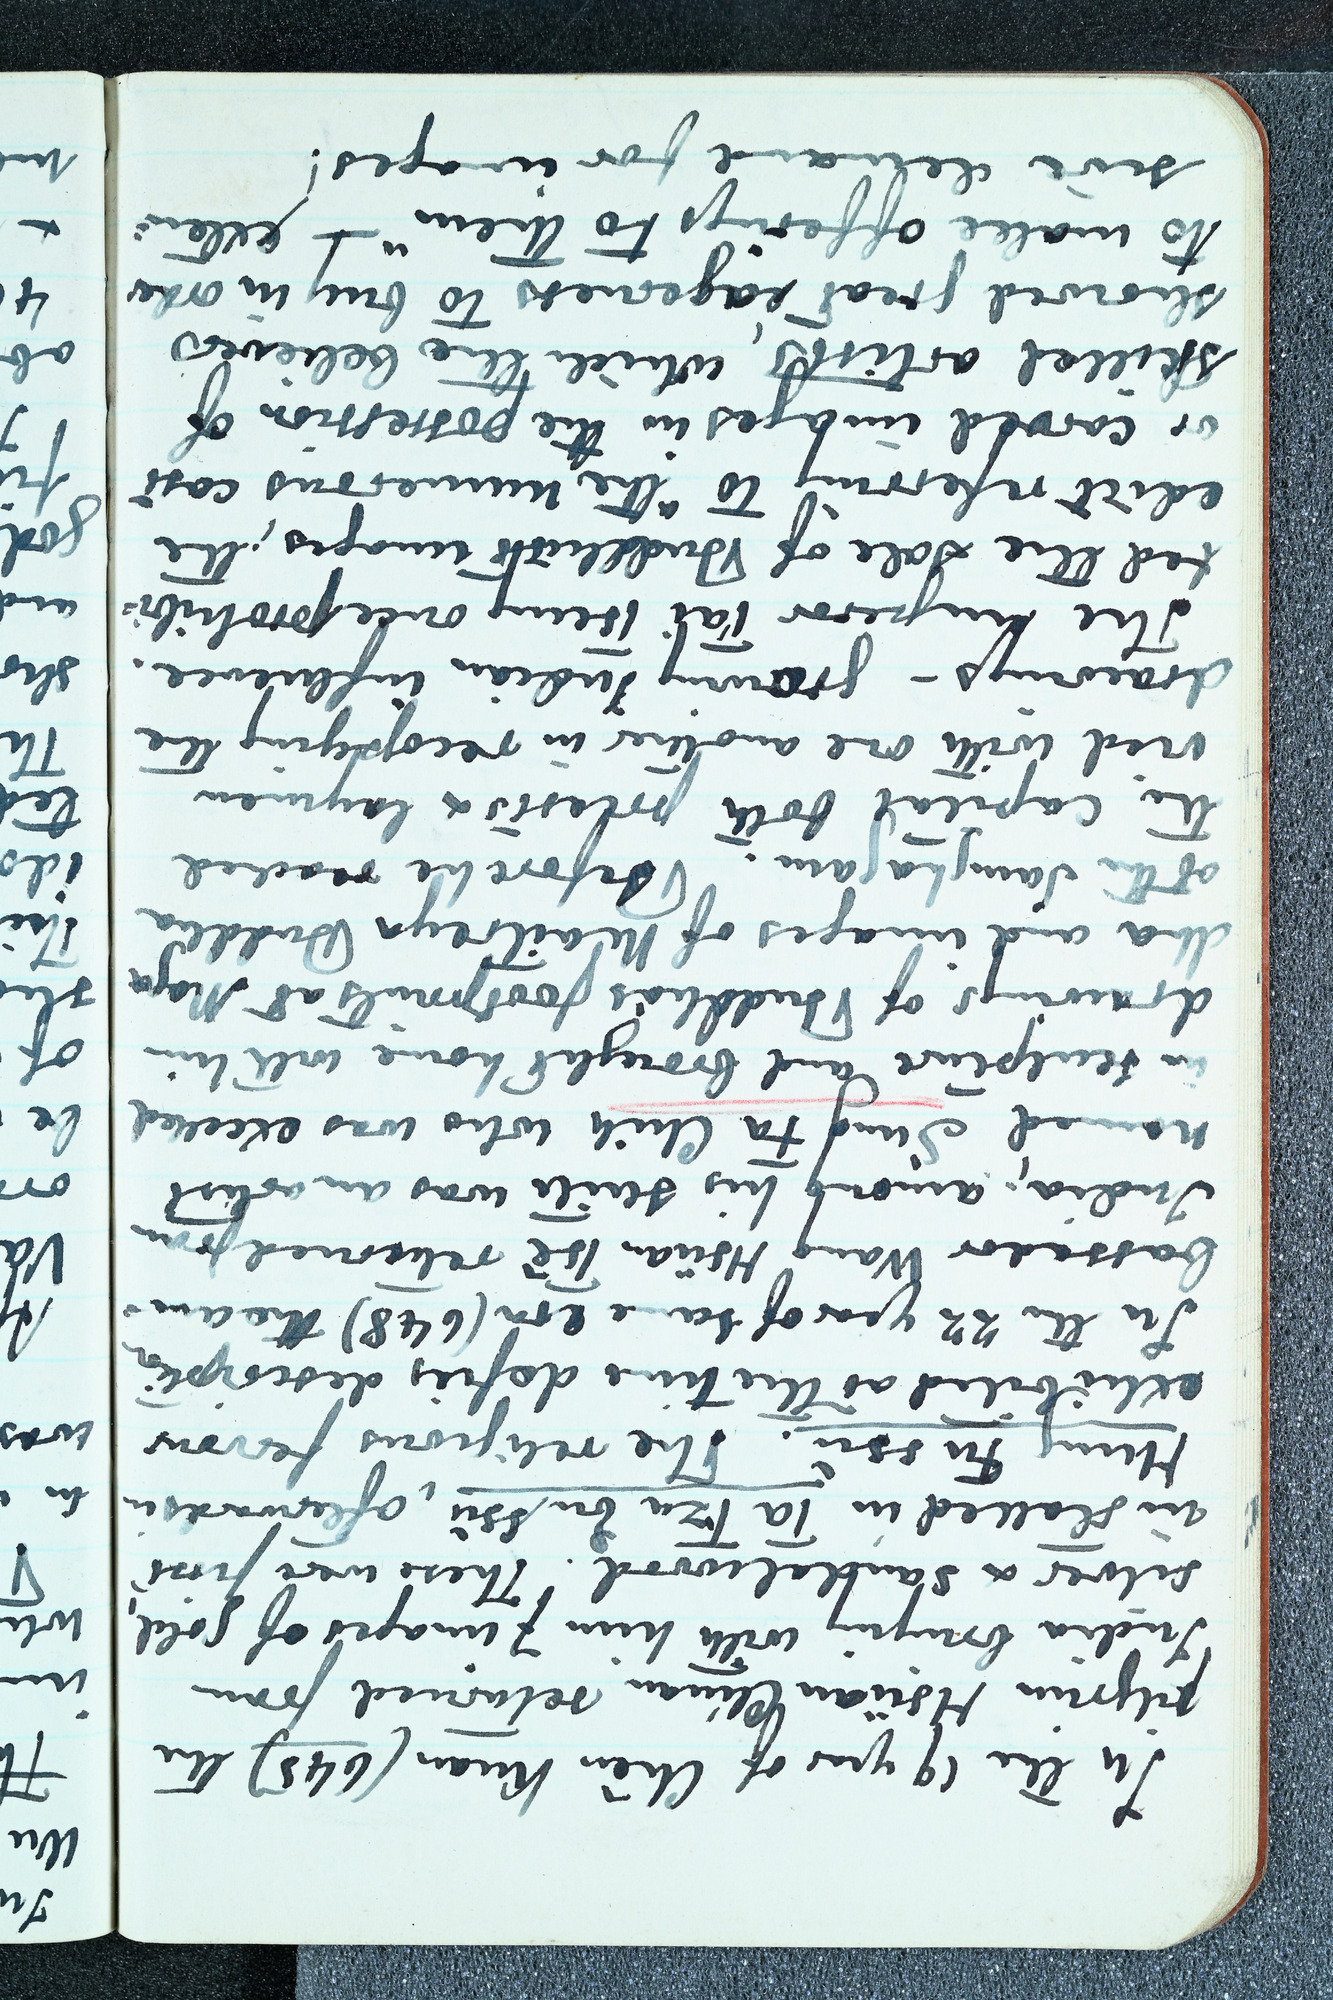 In the 19 year of Chên Kuan (645) the
pilgrim Hsüan Chuan returned from
India bringing with him 7 images of gold,
silver & sandalwood. These were first
installed in Ta Tzu En ssü, afterwards in
Hung Fu ssü. The religious fervour
exhibited at the time defies description.
In the 22 year of same era (648) the am-
bassador Wang Hsüan tsê returned from
India; among his suite was an artist
named Sung Fa Chih who was excelled
in sculpture and brought home with him
drawings of Buddha's footprints at Maga
dha and images of Maitreya Buddha
at the Sanghafam. Before he reached
the capital both priests & laymen
vied with one another in recopying the
drawings – growing Indian influence.
The Emperor Tai tsung once prohibi-
ted the sale of Buddhist images; the
edict referring to "the numerous cast
or carved images in the possession of
skilled artists, which the believers
showed great eagerness to buy in order
to make offerings to them" – exten-
sive demand for images!